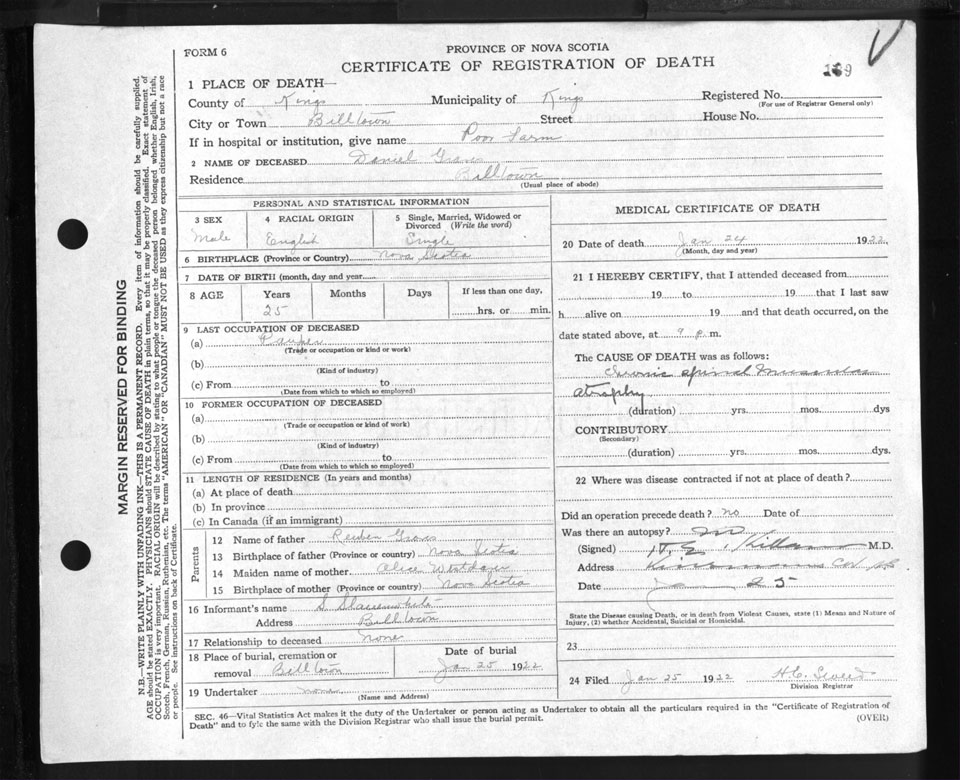 FORM 6
PROVINCE OF NOVA SCOTIA
CERTIFICATE OF REGISTRATION OF DEATH
169
1 PLACE OF DEATH—
County of Kings Municipality of Kings Registered No.
(For use of Registrar General only)
City or Town Billtown Street House No.
If in hospital or institution, give name Poor Farm
2 NAME OF DECEASED Daniel
Residence Billtown
(Usual place of abode)
PERSONAL AND STATISTICAL INFORMATION
3 SEX Male
4 RACIAL ORIGIN English
5 Single, Married, Widowed or Divorced (Write the word) Single
6 BIRTHPLACE (Province or Country) Nova Scotia
7 DATE OF BIRTH (month, day and year)
8 AGE Years Months Days If less than one day,
25 hrs. or min.
9 LAST OCCUPATION OF DECEASED
(a) Pauper
(Trade or occupation or kind or work)
(b)
(Kind of industry)
(c) From to
(Date from which to which so employed)
10 FORMER OCCUPATION OF DECEASED
(a)
(Trade or occupation or kind of work)
(b)
(Kind of industry)
(c) From to
(Date from which to which so employed)
11 LENGTH OF RESIDENCE (In years and months)
(a) At place of death
(b) In province
(c) In Canada (if an immigrant)
Parents
12 Name of father Reuben
13 Birthplace of father (Province or country) Nova Scotia
14 Maiden name of mother Alice
15 Birthplace of mother (Province or country) Nova Scotia
16 Informant's name S.
Address Billtown
17 Relationship to deceased none
18 Place of burial, cremation or removal Billtown
Date of burial
Jan 25 1922
19 Undertaker none
(Name and Address)
MEDICAL CERTIFICATE OF DEATH
20 Date of death Jan 24 1922
(Month, day and year)
21 I HEREBY CERTIFY, that I attended deceased from
19 to 19 that I last saw
h alive on 19 and that death occurred, on the
date stated above, at 9 p.m.
The CAUSE OF DEATH was as follows:
Chronic spinal muscular
atrophy
(duration) yrs. mos. dys
CONTRIBUTORY
(Secondary)
(duration) yrs. mos. dys.
22 Where was disease contracted if not at place of death?
Did an operation precede death? no Date of
Was there an autopsy? no
(Signed) M.D.
Address
Date 25
State the Disease causing Death, or in death from Violent Causes, state (1) Means and Nature of
Injury, (2) whether Accidental, Suicidal or Homicidal.
23
24 Filed Jan 25 1922 H.C.
Division Registrar
SEC. 46—Vital Statistics Act makes it the duty of the Undertaker or person acting as Undertaker to obtain all the particulars required in the "Certificate of Registration of
Death" and to fyle the same with the Division Registrar who shall issue the burial permit. (OVER)
MARGIN RESERVED FOR BINDING
N.B.—WRITE PLAINLY WITH UNFADING INK—THIS IS A PERMANENT RECORD. Every item of information should be carefully supplied.
AGE should be stated EXACTLY. PHYSICIANS should STATE CAUSE OF DEATH in plain terms, so that it may be properly classified. Exact statement of
OCCUPATION is very important. RACIAL ORIGIN will be described by stating to what people or tongue the deceased person belonged whether English, Irish,
Scotch, French, German, Russian, Ruthenian, etc. The terms "AMERICAN" OR "CANADIAN" MUST NOT BE USED as they express citizenship but not a race
or people. See instructions on back of Certificate.